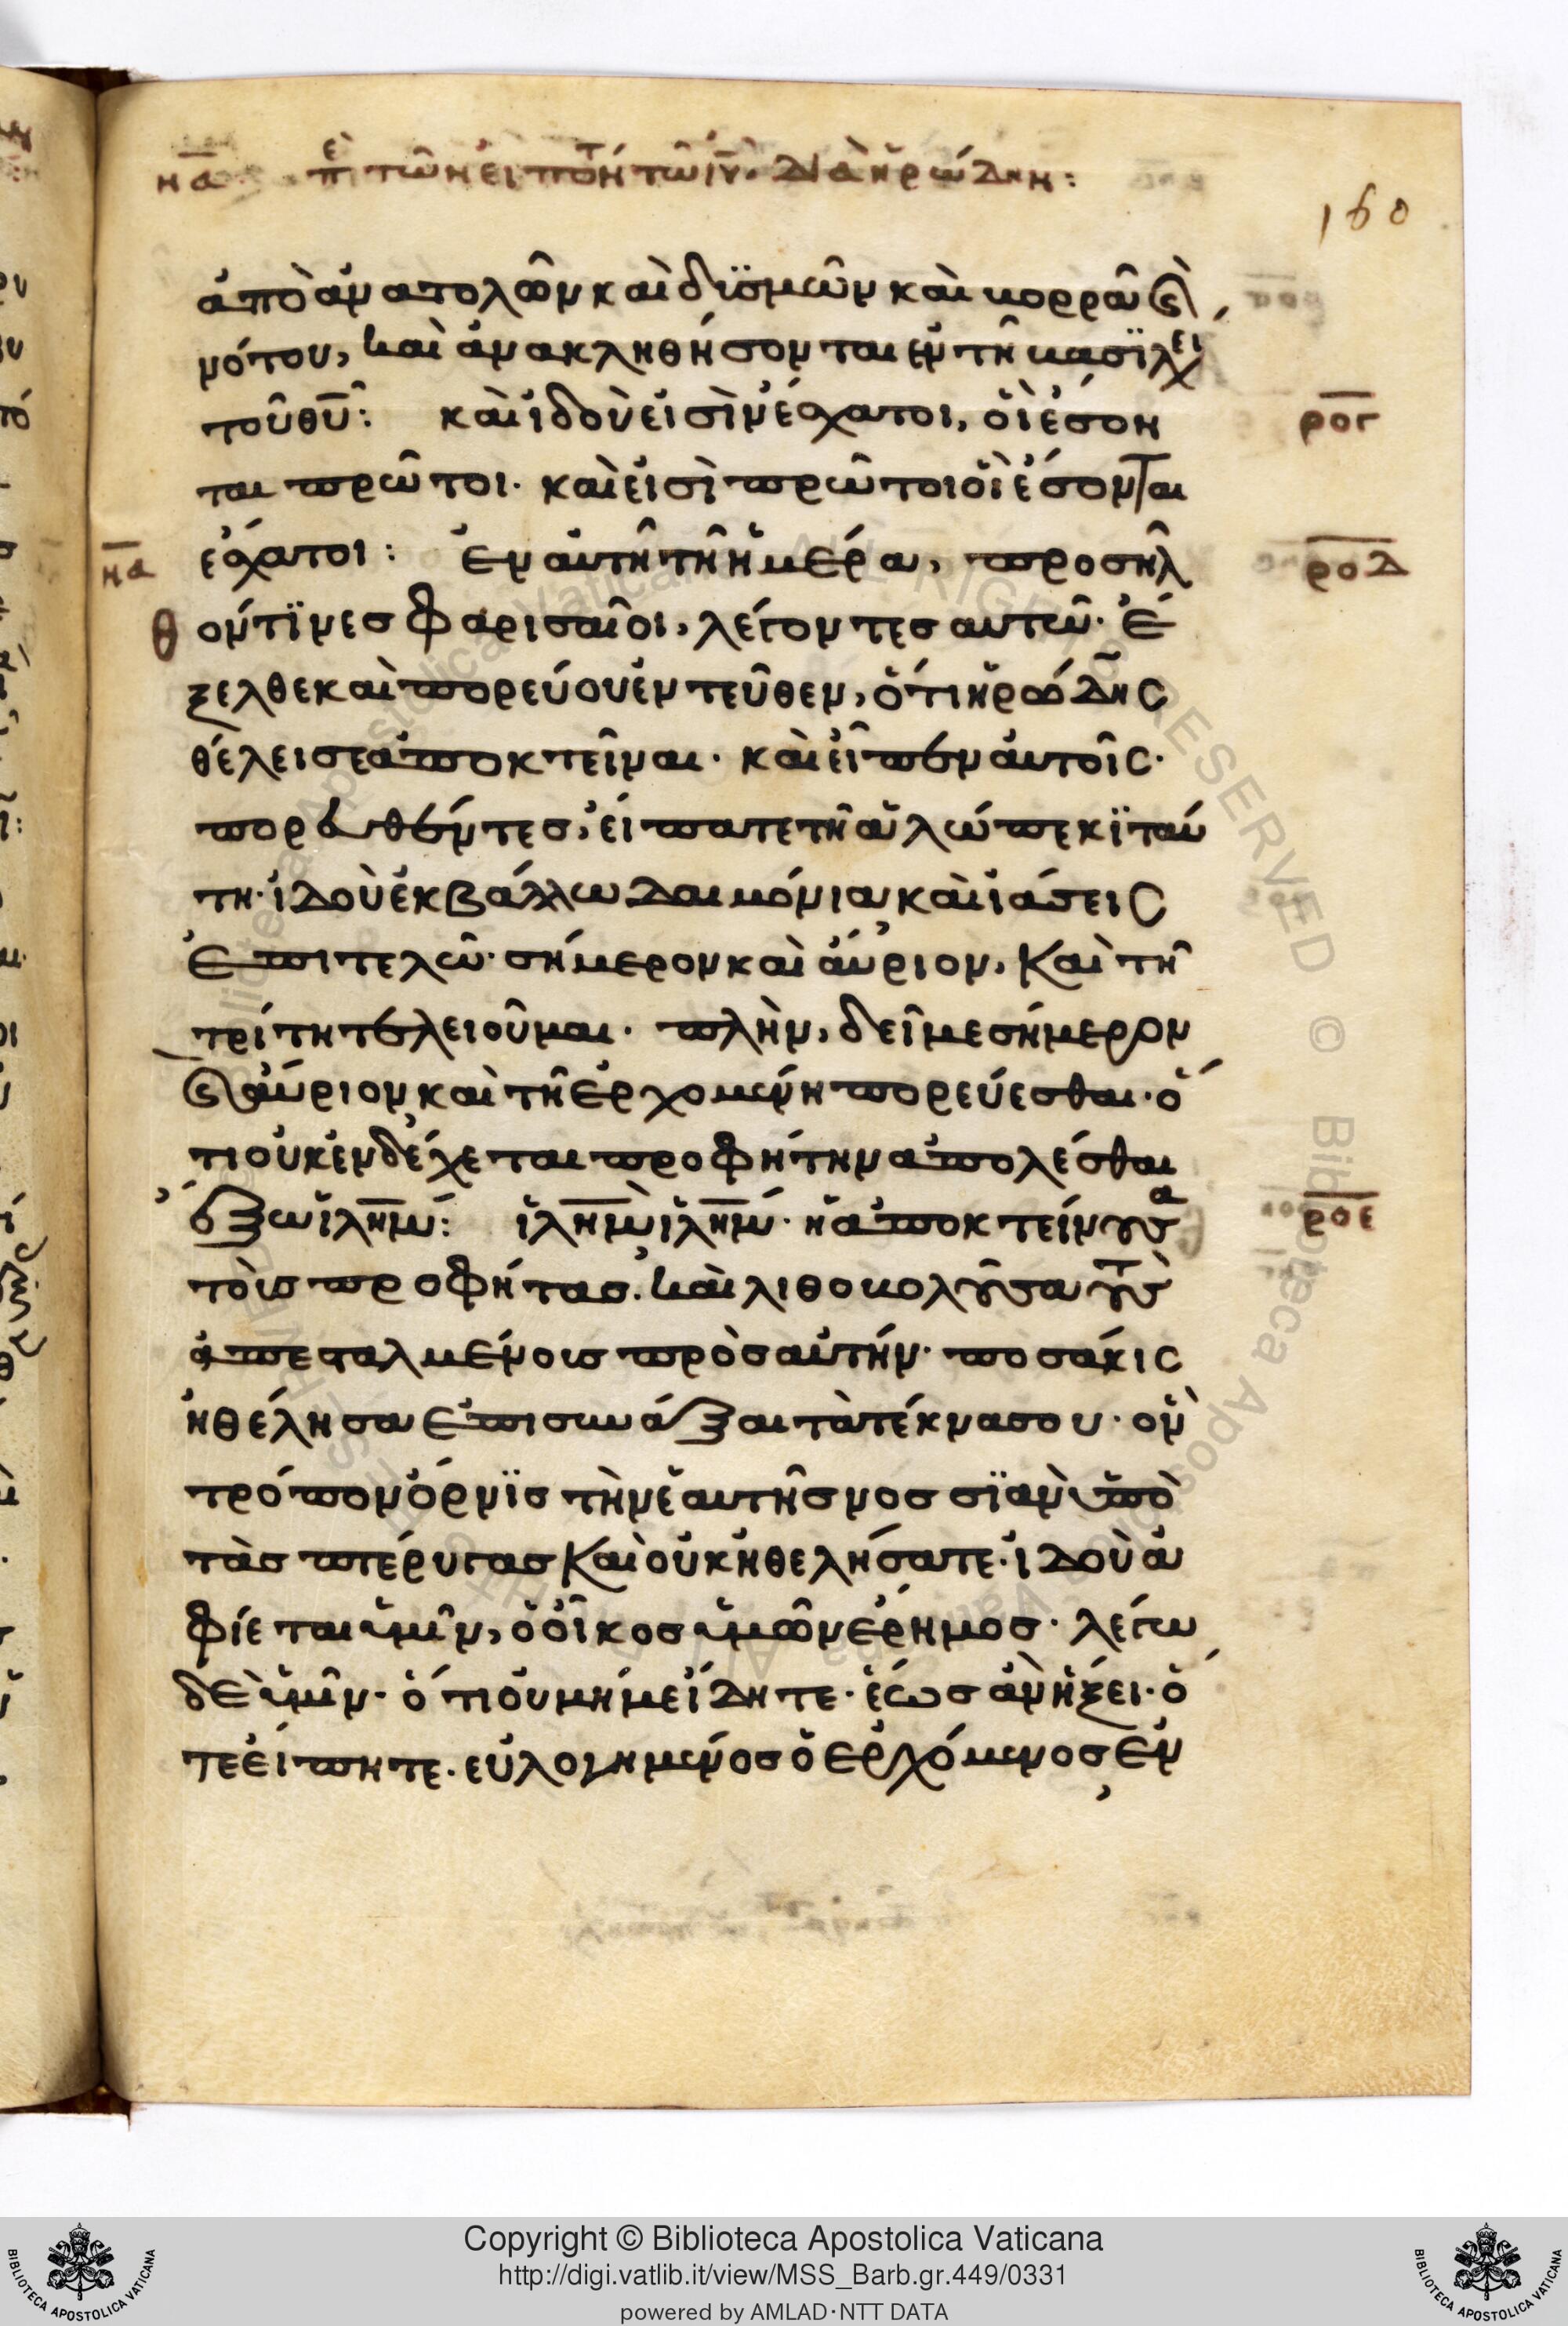 να ἐπὶ τῶν εἰπόντων τῶ ιυ διὰ ἡρώδην:
160
ἀπὸ ἀνατολῶν καὶ δϋσμῶν καὶ βορρᾶ καὶ
νότου, καὶ ἀνακληθήσονται ἐν τῆ βασϊλει
τοῦ θυ: καὶ ἰδοὺ εἰσὶν ἔσχατοι, οἳ ἔσον
ρογ
ται πρῶτοι. καὶ εἰσὶ πρῶτοι οἳ ἔσονται
να
ἔσχατοι: ἐν αὐτῆ τῆ ἡμέρα, προσῆλ
ροδ
θον τϊνες φαρισαῖοι, λέγοντες αὐτῶ· ἔ
ξελθε καὶ πορεύου ἐντεῦθεν, ὅτι ἡρώδης
θέλει σε ἀποκτεῖναι. καὶ εἶπεν αὐτοῖς·
πορευθέντες, εἴπατε τῆ ἀλώπεκϊ ταύ
τη· ἰδοὺ ἐκβάλλω δαιμόνια καὶ ἰάσεις
ἐπιτελῶ· σήμερον καὶ αὔριον, καὶ τῆ
τρίτη τελειοῦμαι. πλὴν, δεῖ με σήμερον
καὶ αὔριον καὶ τῆ ἐρχομένη πορεύεσθαι· ὅ
τι οὐκ ἐνδέχεται προφήτην ἀπολέσθαι
ἔξω ἱλημ: ἱλημ ἱλημ· ἡ ἀποκτείνουσα
ροε
τοὺς προφήτας. καὶ λιθοβολοῦσα τοὺς
ἀπεσταλμένους πρὸς αὐτήν· ποσάκις
ἠθέλησα ἐπισυνάξαι τὰ τέκνα σου· ὃν
τρόπον ὄρνϊς τὴν ἑαυτῆς νοσσϊὰν ὑπὸ
τὰς πτέρυγας καὶ οὐκ ἠθελήσατε· ἰδοὺ ἀ
φίεται ὑμῖν, ὁ οἶκος ὑμῶν ἔρημος· λέγω
δὲ ὑμῖν· ὅτι οὐ μή με ἴδητε· ἕως ἂν ἥξει· ὅ
τε εἴπητε· εὐλογημένος ὁ ἐρχόμενος ἐν
Copyright © Biblioteca Apostolica Vaticana
http://digi.vatlib.it/view/MSS_Barb.gr.449/0331
powered by AMLAD·NTT DATA